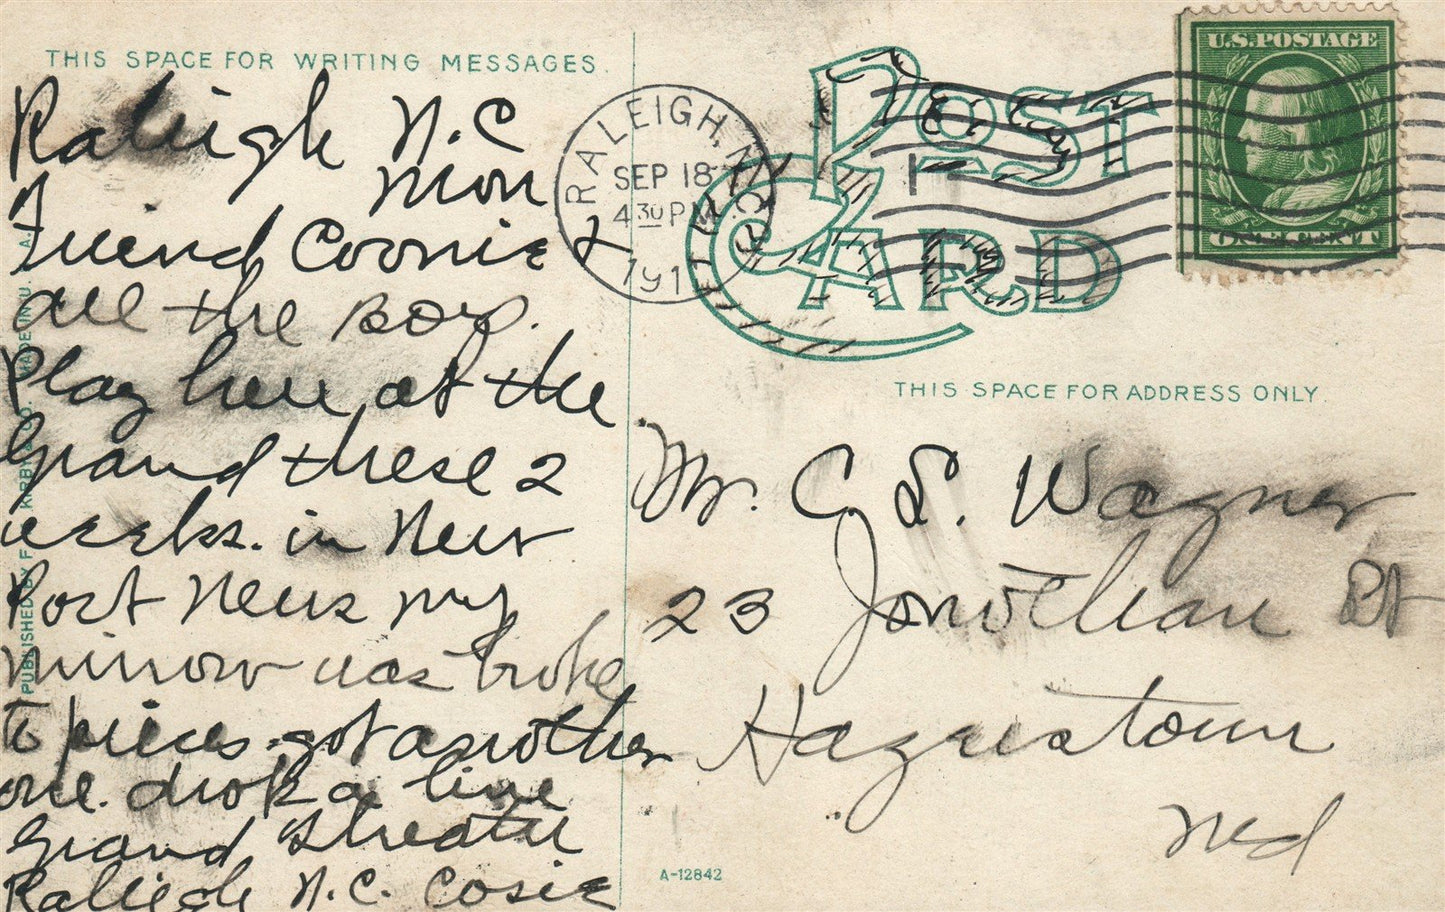 THIS SPACE FOR WRITING MESSAGES.
Raleigh N.C
Mon
Friend Coonie &
all the boys.
Play here at the
Grand these 2
weeks. in New
Port News my
mirrow was broke
to pieces. got another
one. drop a line
Grand Theater
Raliegh N.C. Cosie
RALEIGH, N.C.
SEP 18
4 30 PM
191
POST
CARD
U.S. POSTAGE
ONE CENT
THIS SPACE FOR ADDRESS ONLY.
Mr. C. L. Wagner
23 Jonathan St
Hagerstown
Md
A-12842
PUBLISHED BY F